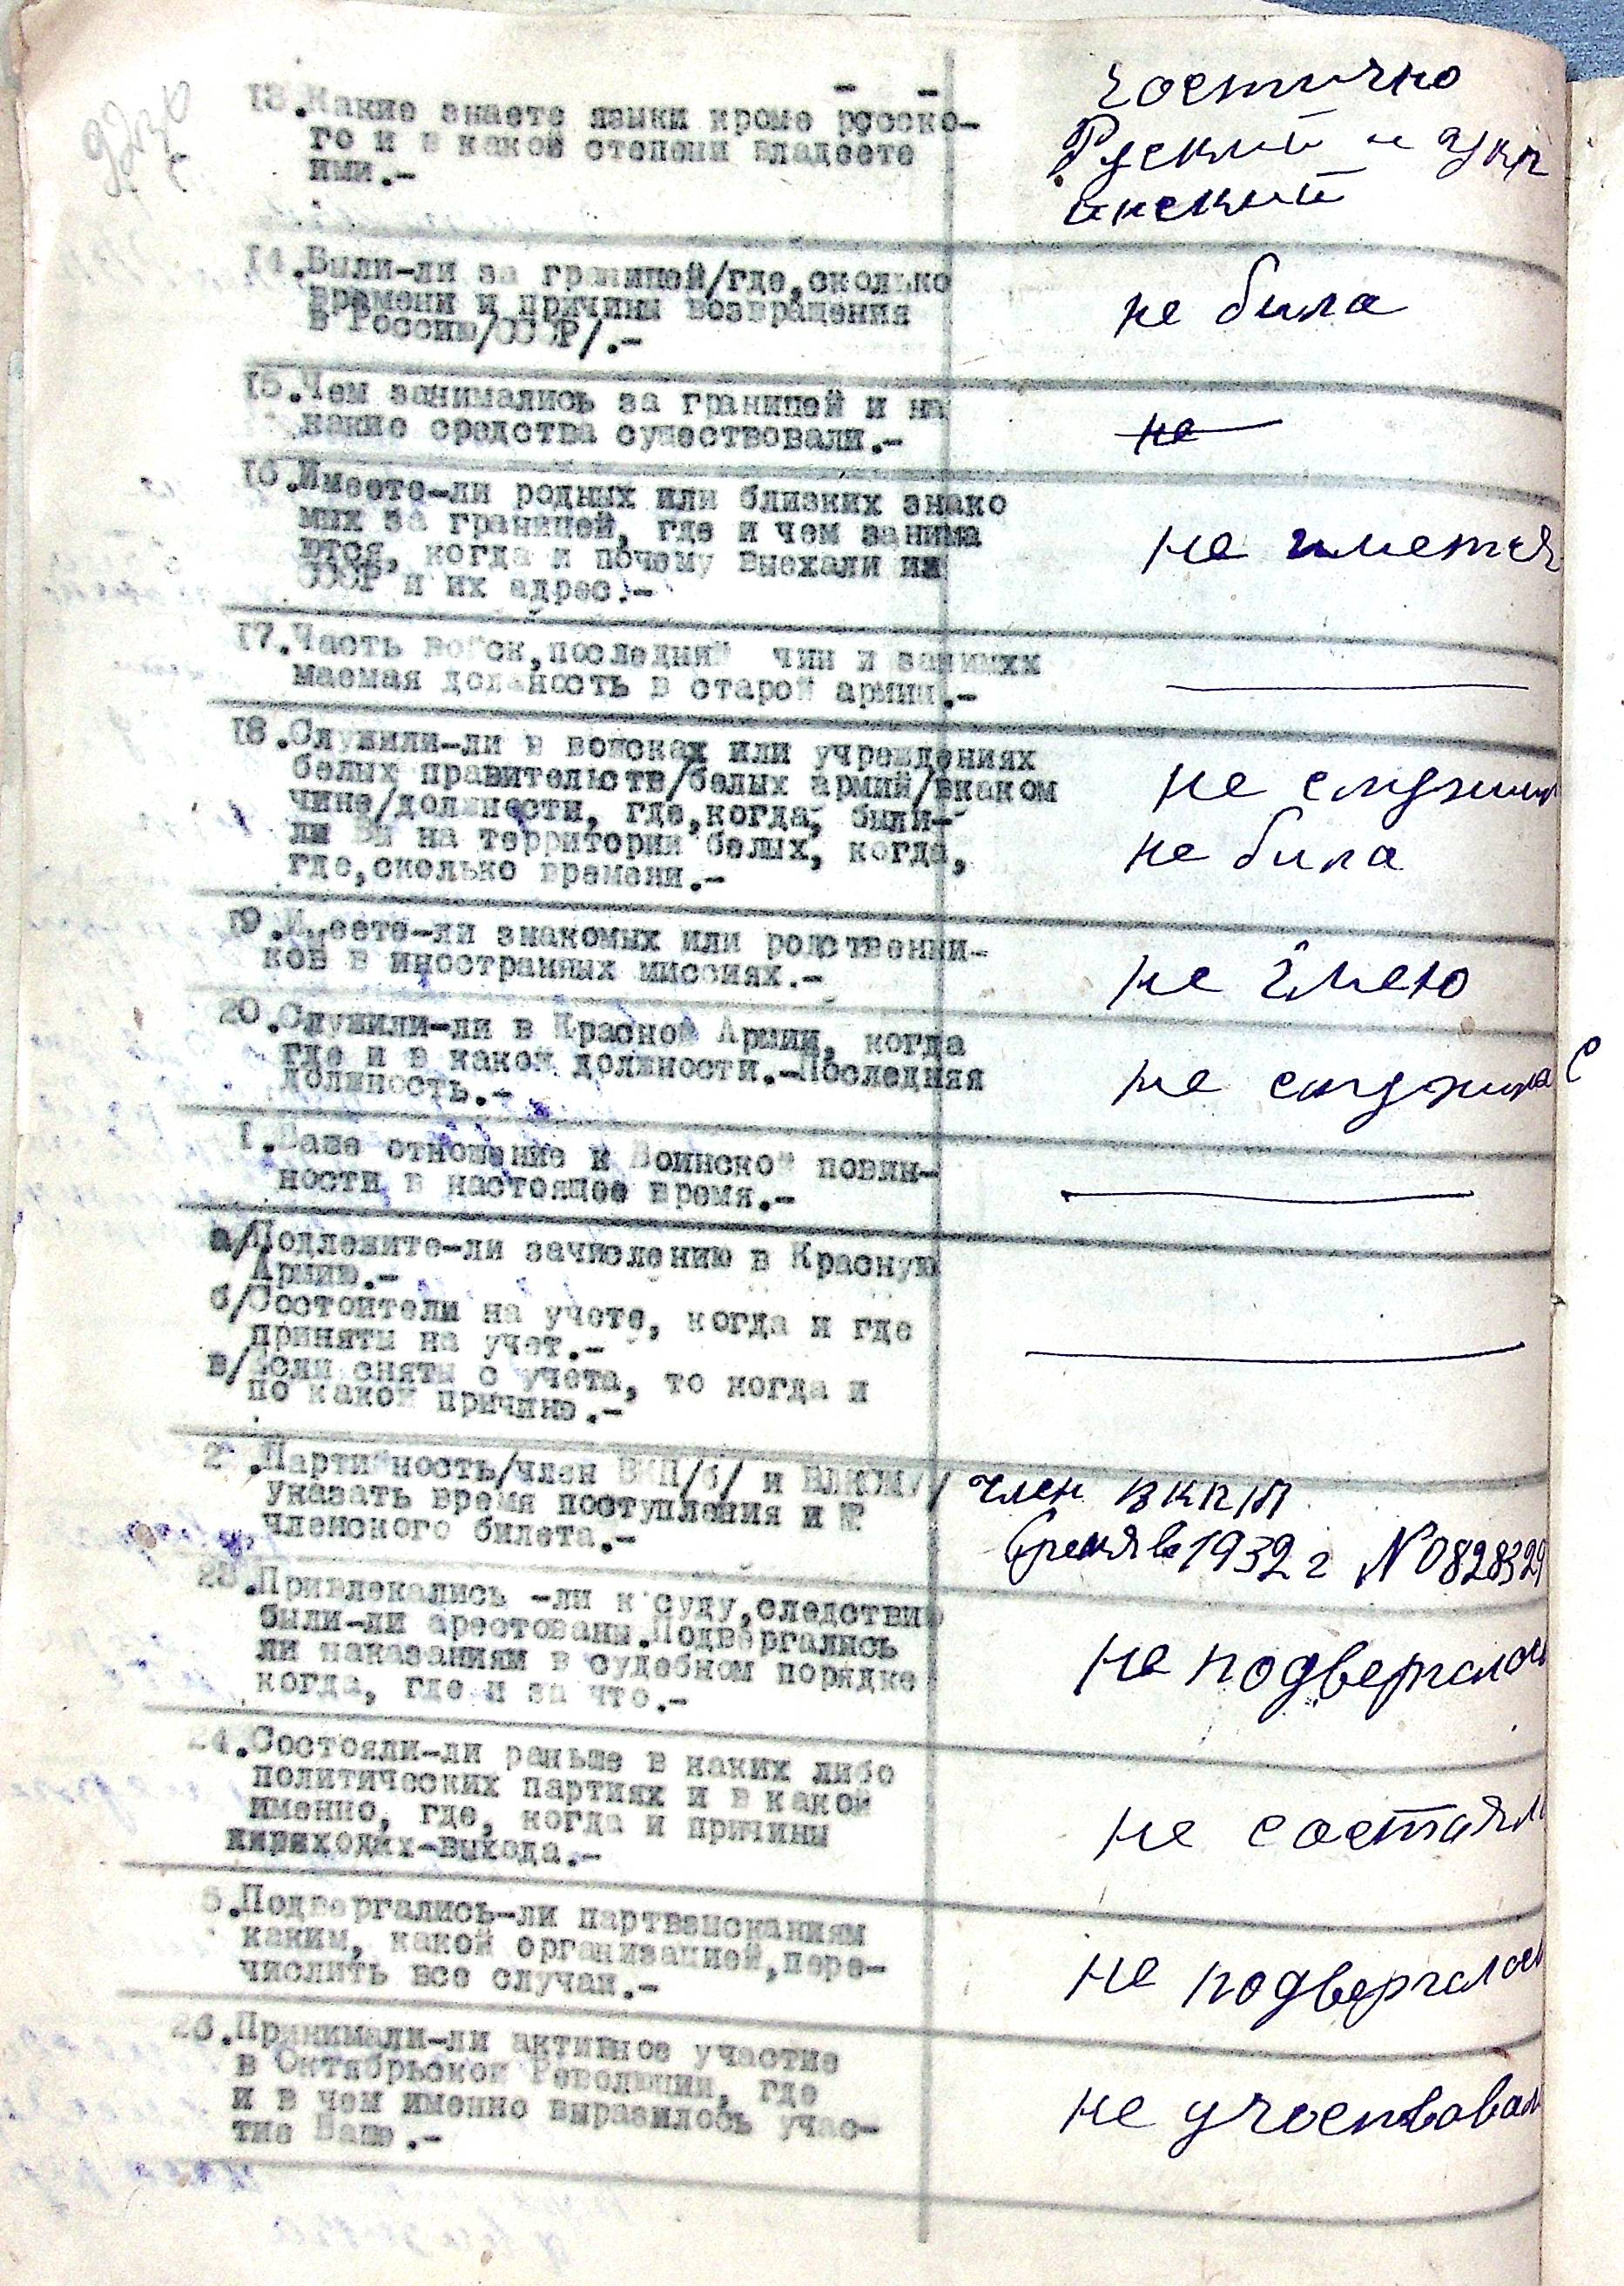 13.Какие знаете языки кроме русско-
го и в какой степени владеете
ими.-
частично
Руский и Укр
инский
14.Были-ли за границей/где,сколько
времени и причины возвращения
в Россию/СССР/.-
не била
15.Чем занимались за границей и на
какие средства существовали.-
не
16.Имеете-ли родных или близких знако
мых за границей, где и чем занима
ются, когда и почему выехали из
СССР и их адрес.-
не иметея
17.Часть войск,последний чин и занимах
маемая должность в старой армии.-
18.Служили-ли в войсках или учреждениях
белых правительств/белых армий/вкаком
чине/должности, где,когда, были-
ли Вы на территории белых, когда,
где,сколько времени.-
не служила
не била
19.Имеете-ли знакомых или родственни-
ков в иностранных миссиях.-
не імею
20.Служили-ли в Красной Армии, когда
где и в какой должности.-Последняя
должность.-
не служила
1.Ваше отношение к Воинской повин-
ности в настоящее время.-
а/Подлежите-ли зачислению в Красную
Армию.-
б/Состоители на учете, когда и где
приняты на учет.-
в/Если сняты с учета, то когда и
по какой причине.-
2 .Партийность/член ВКП/б/ и ВЛКСМ/
указать время поступления и №
членского билета.-
член ВКПП
время в 1932 г №0828329
23.Привлекались -ли к суду,следствию
были-ли арестованы.Подвергались
ли наказаниям в судебном порядке
когда, где и за что.-
не подвергалась
24.Состояли-ли раньше в каких либо
политических партиях и в какой
именно, где, когда и причины
не состаял
5.Подвергались-ли партвзысканиям
каким, какой организацией,пере-
числить все случаи.-
не подвергалась
26.Принимали-ли активное участие
в Октябрьской Революции, где
и в чем именно выразилось учас-
тие Ваше.-
не участвовал